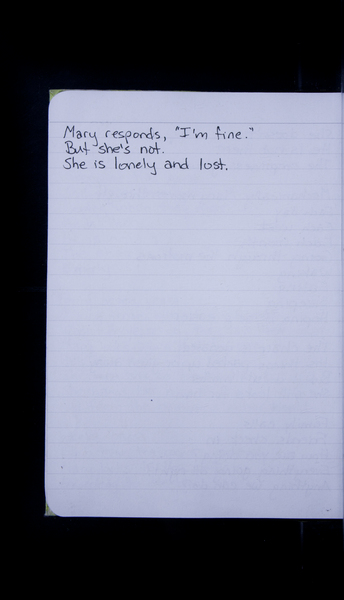 Mary responds, "I'm fine."
But she's not.
She is lonely and lost.